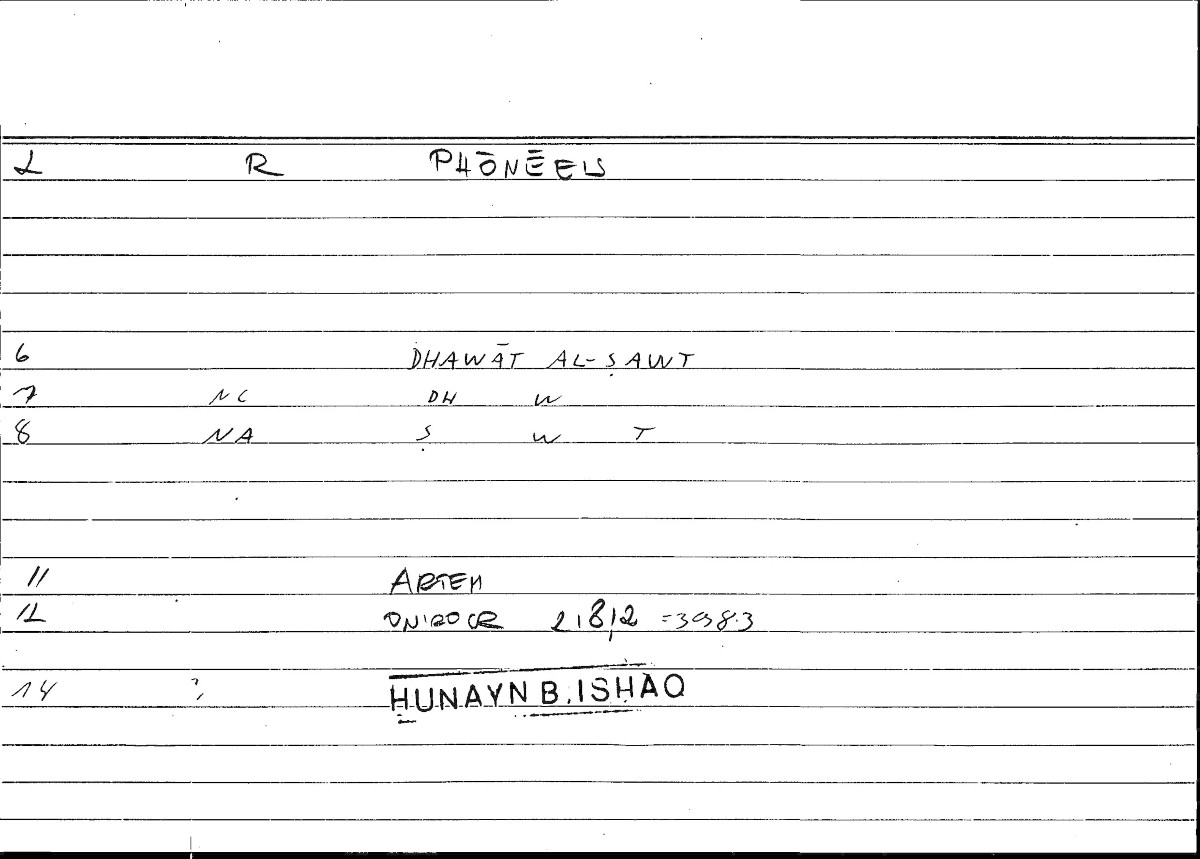 L R PHŌNĒEIS
6 DHAWĀT AL-ṢAWT
7 NC DH W
8 NA Ṣ W T
11 ARTEM
12 ONIROCR 2,8,2 =398.3
14 ?, ḤUNAYN B. ISḤĀQ